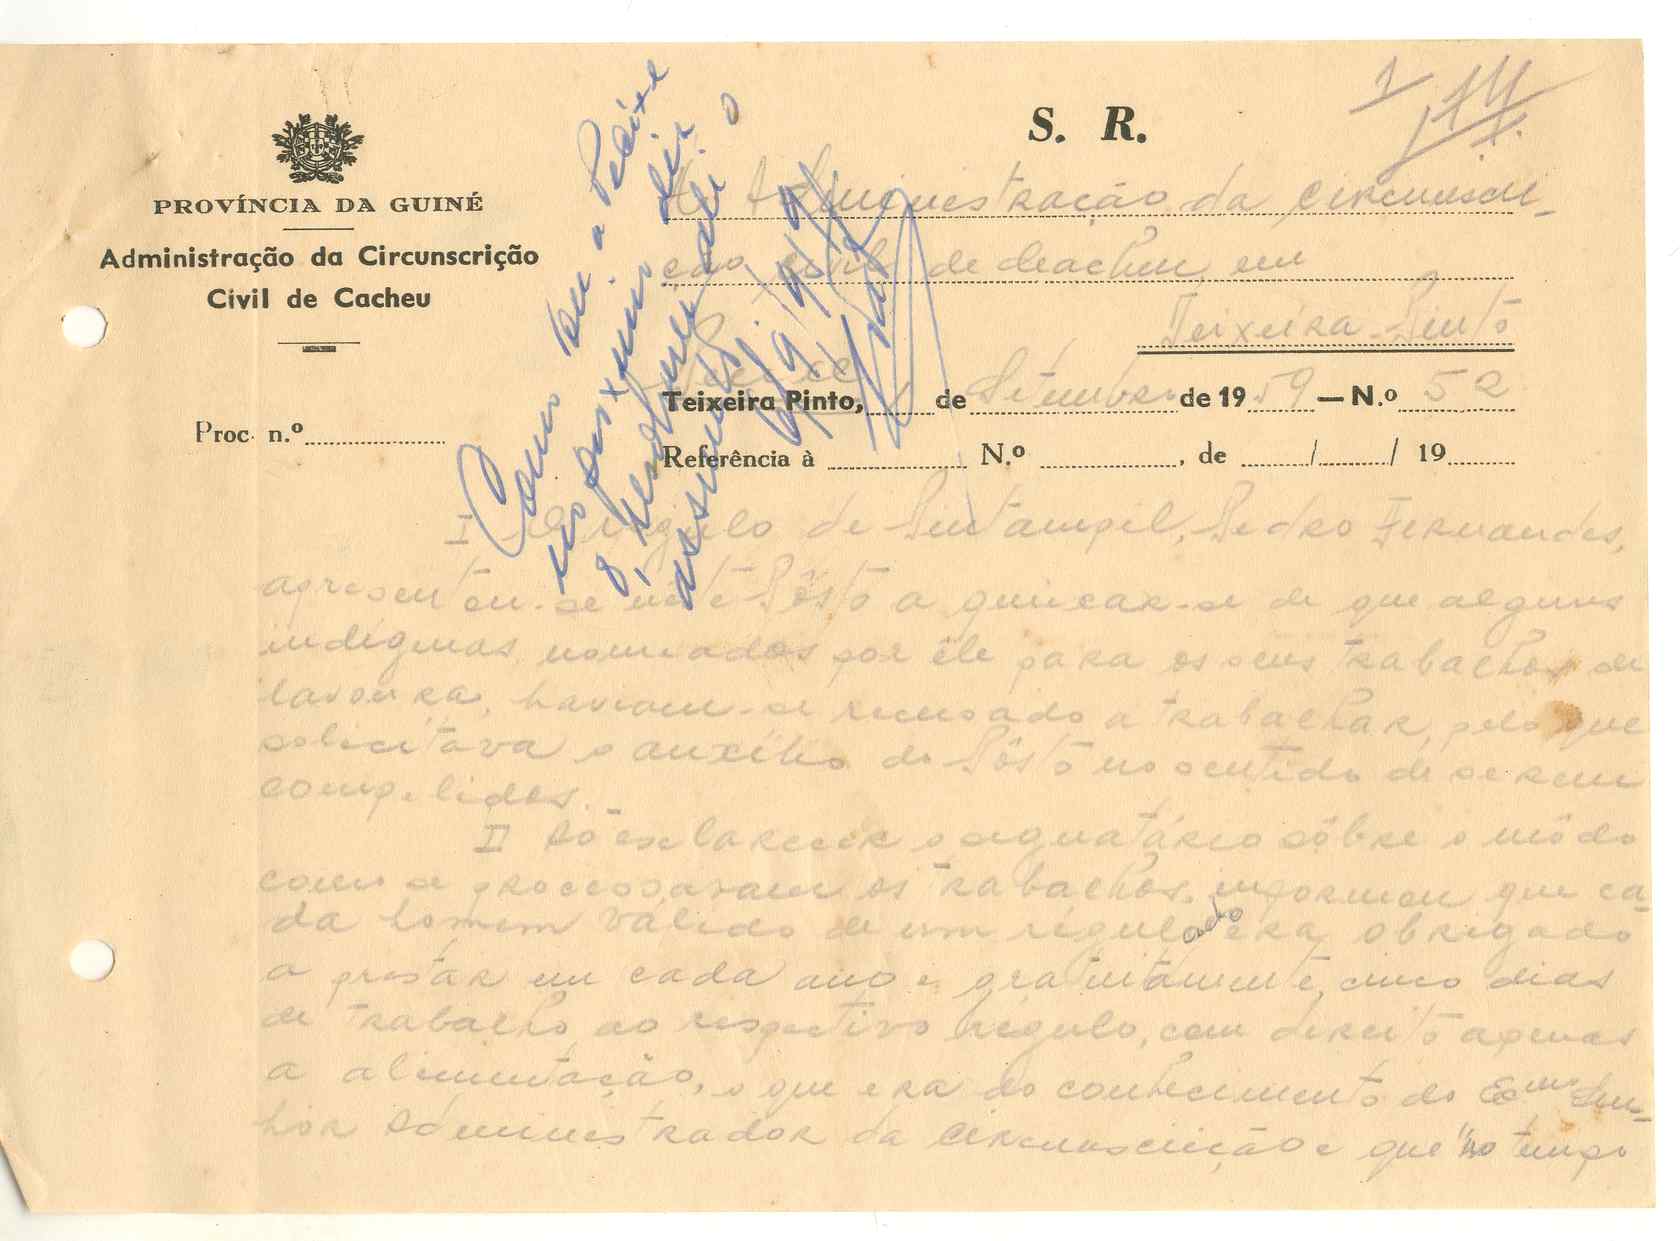 1 14
S. R.
PROVÍNCIA DA GUINÉ
Administração da Circunscrição
Civil de Cacheu
À Administração da Circunscri-
ção Civil de Cacheu em
Teixeira Pinto
Teixeira Pinto, de Setembro de 1959 — N.º 52
Proc. n.º
Referência à N.º , de / / 19
Como vem a Pelixe
no próximo dia
9, resolverá ali o
assunto.
9/9/959
I O régulo de Pintampil, Pedro Fernandes,
apresentou-se nêste Pôsto a queixar-se de que alguns
indígenas nomeados por êle para os seus trabalhos de
lavoura, haviam-se recusado a trabalhar, pelo que
solicitava o auxílio do Pôsto no sentido de serem
compelidos.
II Ao esclarecer o signatário sôbre o módo
como se processavam os trabalhos, informou que ca-
da homem válido de um regulado era obrigado
a prestar em cada ano e gratuitamente, cinco dias
de trabalho ao respectivo régulo, com direito apenas
a alimentação, o que era do conhecimento do Exmo Sen-
hor Administrador da Circunscrição e que "no tempo